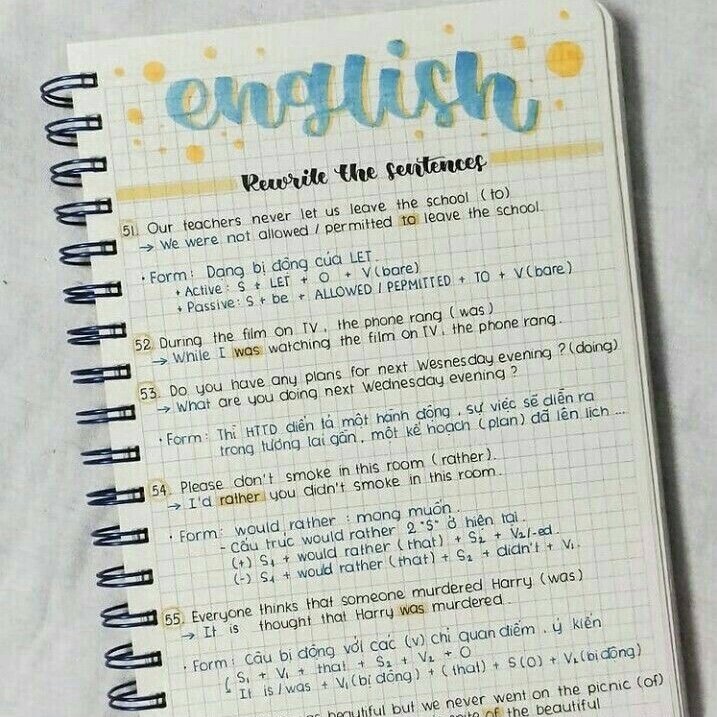 english
Rewrite the sentences
51. Our teachers never let us leave the school (to)
→ We were not allowed / permitted to leave the school.
• Form: Dạng bị động của LET.
• Active: S + LET + O + V(bare)
• Passive: S + be + ALLOWED / PEPMITTED + TO + V(bare)
52. During the film on TV, the phone rang (was)
→ While I was watching the film on TV, the phone rang.
53. Do you have any plans for next Wesnesday evening? (doing)
→ What are you doing next Wednesday evening?
• Form: Thì HTTD diễn tả một hành động, sự việc sẽ diễn ra
trong tương lai gần, một kế hoạch (plan) đã lên lịch ...
54. Please don't smoke in this room (rather).
→ I'd rather you didn't smoke in this room.
• Form: would rather: mong muốn.
- Cấu trúc would rather 2 "S" ở hiện tại.
(+) S1 + would rather (that) + S2 + V2/-ed.
(-) S1 + would rather (that) + S2 + didn't + V1.
55. Everyone thinks that someone murdered Harry (was)
→ It is thought that Harry was murdered.
• Form: Câu bị động với các (v) chỉ quan điểm, ý kiến
S1 + V1 + that + S2 + V2 + O
↳ It is/was + V1(bị động) + (that) + S(O) + V2(bị động)
beautiful but we never went on the picnic (of)
of the beautiful